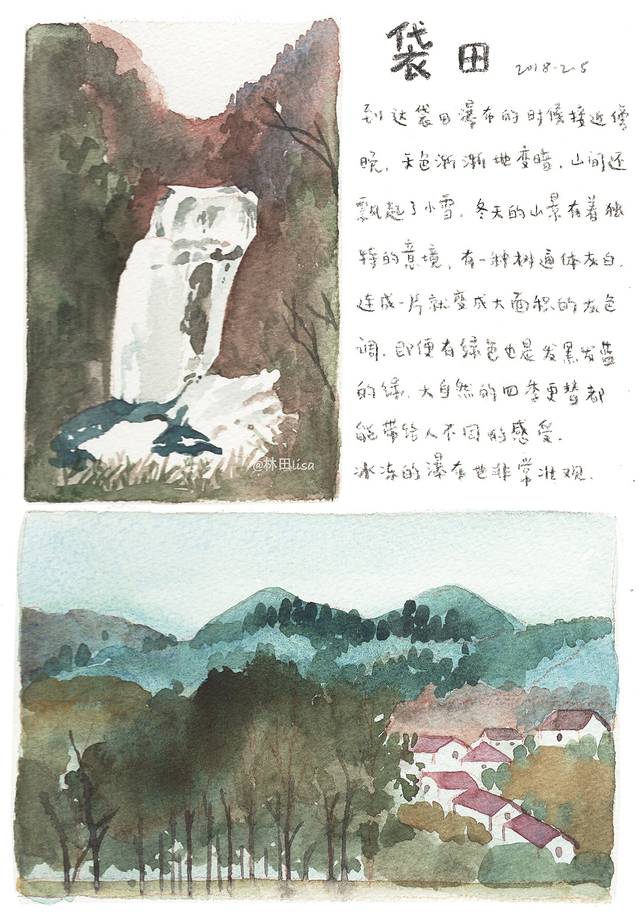 袋田 2018.2.5
到达袋田瀑布的时候接近傍
晚，天色渐渐地变暗，山间还
飘起了小雪。冬天的山景有着独
特的意境，有一种树通体灰白，
连成一片就变成大面积的灰色
调，即便有绿色也是发黑发蓝
的绿，大自然的四季更替都
能带给人不同的感受。
冰冻的瀑布也非常壮观。
@林田lisa